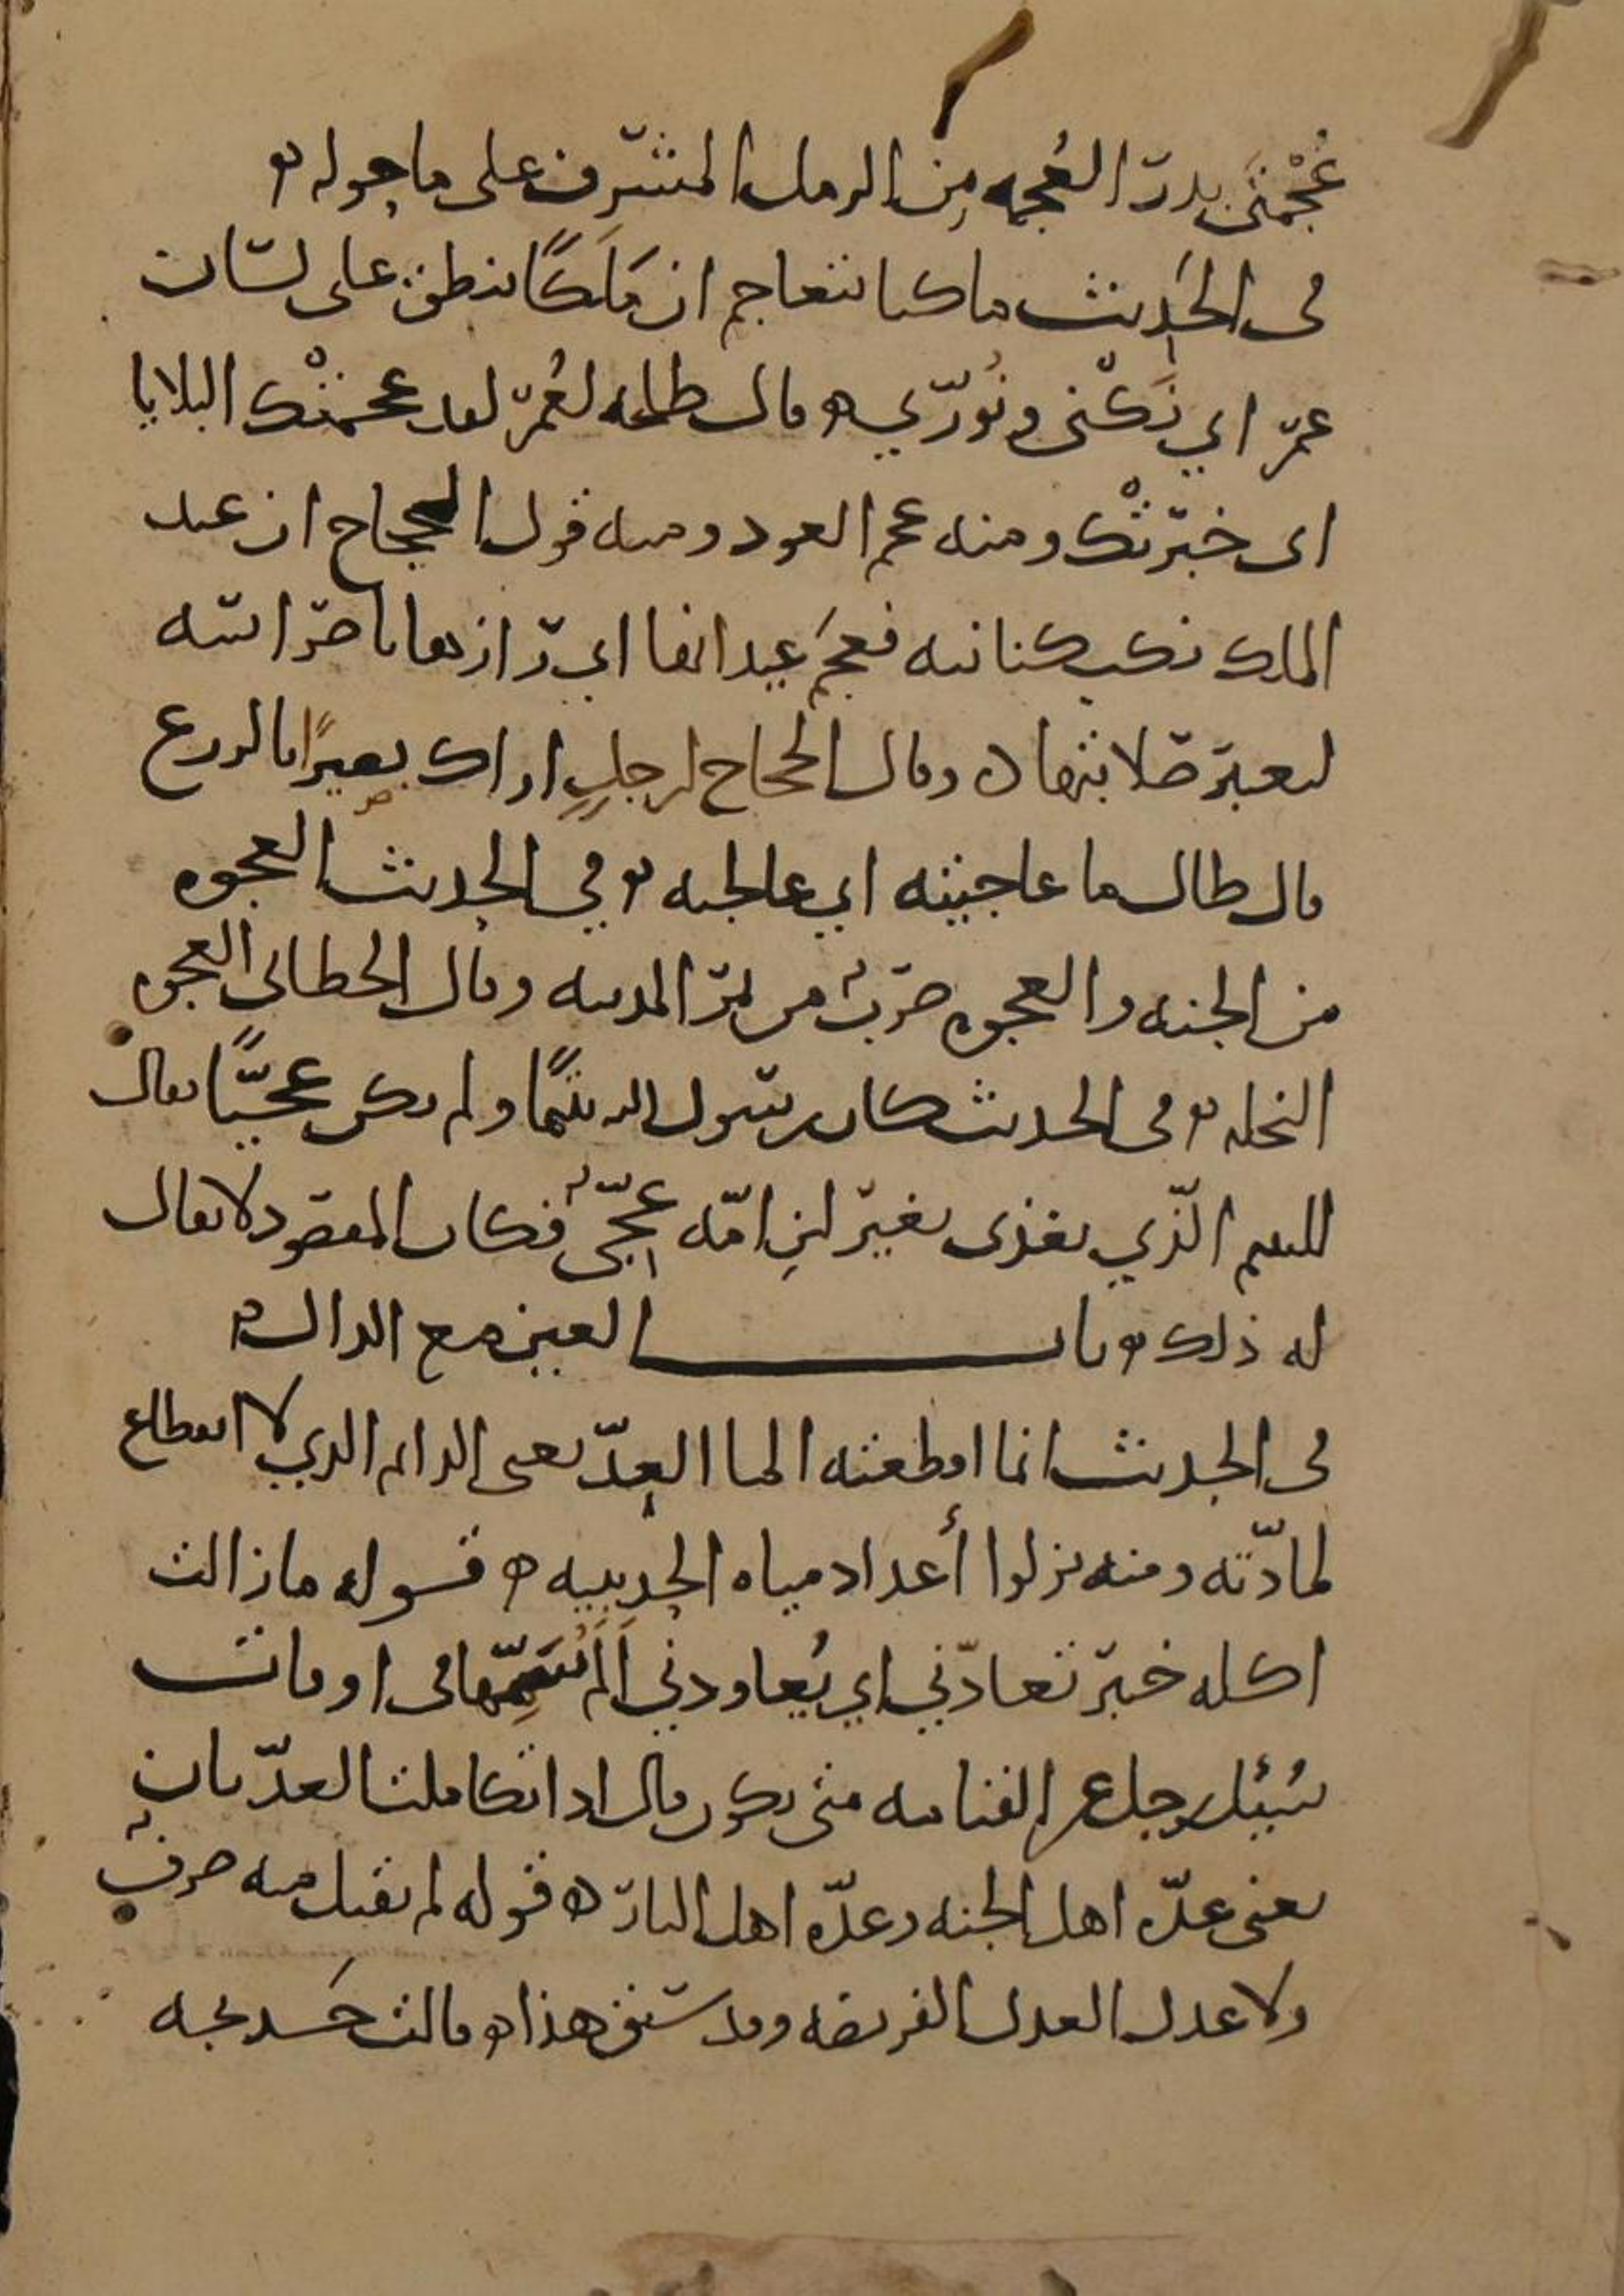 عُجْمَتَي بدر العُجمه مِن الرمل المشرف على ما حوله
في الحديث ما كنا نتعاجم ان مَلَكًا ينطق على لسان
عمر اي نَكْني ونُورّي قال طلحه لعُمر لقد عجمتْك البلايا
اي خبرتْك ومنه عجم العود ومنه قول الحجاج ان عبد
الملك نكب كنانته فعجَم عيدانها اي رازها باضراسه
ليعبر صلابتها وقال الحجاج لرجلٍ اراك بصيرًا بالزرع
قال طال ما عاجيته اي عالجته وفي الحديث العجوه
من الجنه والعجوه ضربٌ من تمر المدينه وقال الخطابي العجوه
النخله وفي الحديث كان رسول الله يتيمًا ولم يكن عجيًّا يقال
لليتيم الّذي يغذى بغير لبنِ امّه عجيٌّ فكان المقصود لا يقال
له ذلك باب العين مع الدال
في الحديث انما اقطعته الما العِدّ يعني الدايم الذي لا انقطاع
لمادّته ومنه نزلوا أعداد مياه الحديبيه قوله ما زالت
اكله خيبر تعادّني اي يُعاودني أَلَمُ سَمِّها في اوقات
سُئِل رجل عن القيامه متى يكون قال اذا تكاملت العدّتان
يعني عدّه اهل الجنه وعدّه اهل النار قوله لم يقبل منه صرفٌ
ولا عدل العدل الفريضه وقد سبق هذا قالت خَديجه